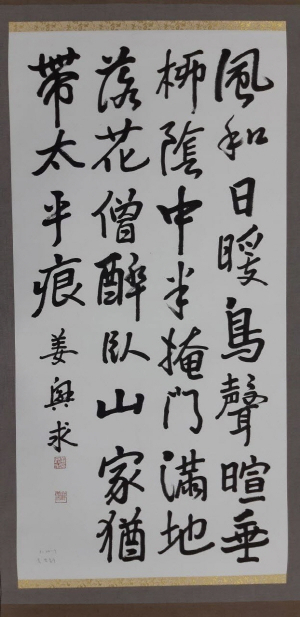 風和日暖鳥聲喧垂
柳陰中半掩門滿地
落花僧醉臥山家猶
帶太平痕
姜興求